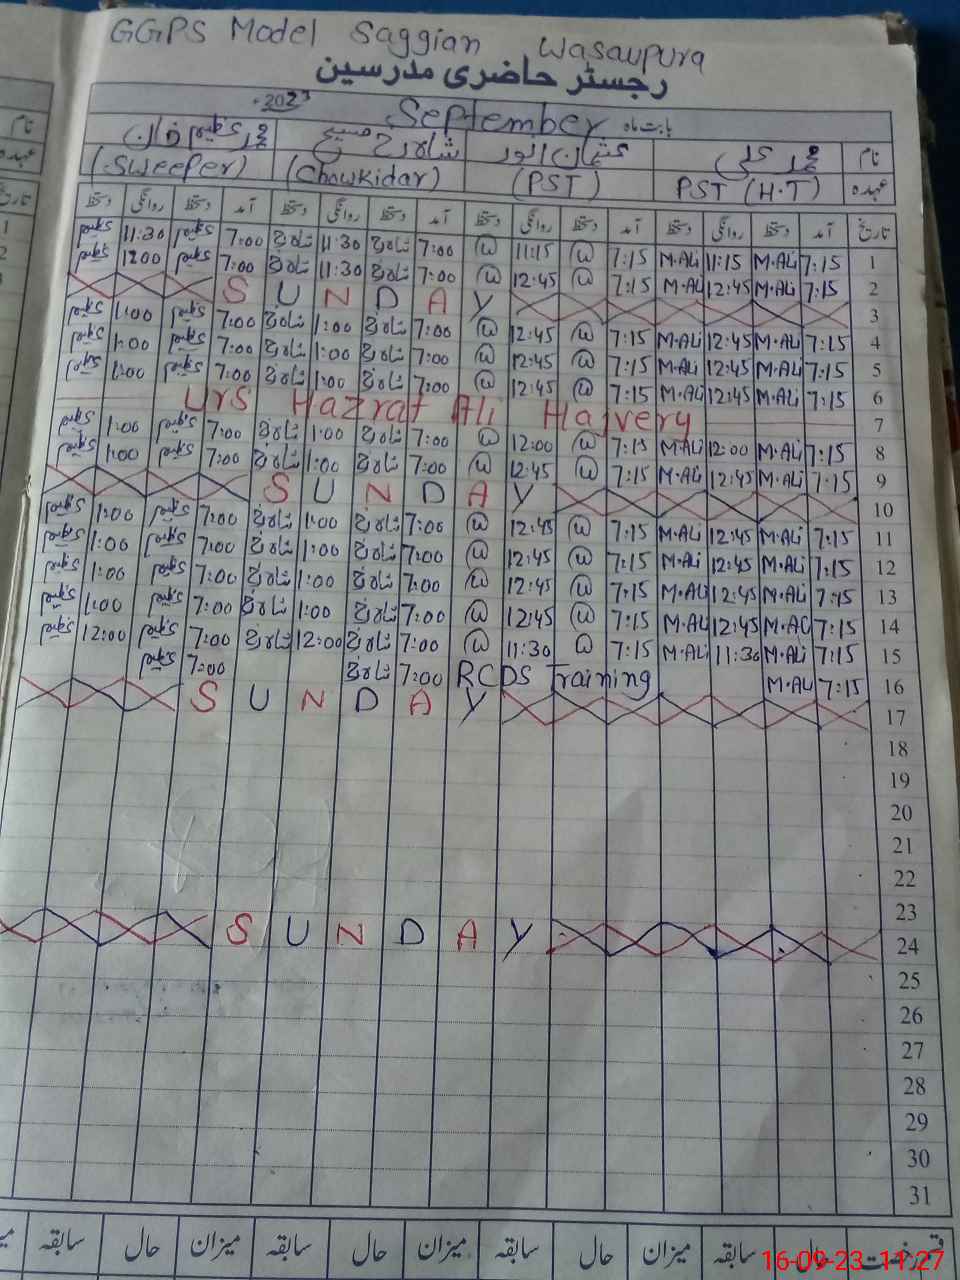 GGPS Model Saggian Wasanpura
رجسٹر حاضری مدرسین
بابت ماہ September 2023ء
نام محمد علی عثمان انور شارح مسیح محمد عظیم خان
عہدہ PST (H.T) (PST) (Chowkidar) (Sweeper)
تاریخ آمد دستخط روانگی دستخط آمد دستخط روانگی دستخط آمد دستخط روانگی دستخط آمد دستخط روانگی دستخط
1 7:15 M.ALi 11:15 M.ALi 7:15 11:15 7:00 شارح 11:30 شارح 7:00 عظیم 11:30 عظیم
2 7:15 M.ALi 12:45 M.ALi 7:15 12:45 7:00 شارح 11:30 شارح 7:00 عظیم 12:00 عظیم
3 SUNDAY
4 7:15 M.ALi 12:45 M.ALi 7:15 12:45 7:00 شارح 1:00 شارح 7:00 عظیم 1:00 عظیم
5 7:15 M.ALi 12:45 M.ALi 7:15 12:45 7:00 شارح 1:00 شارح 7:00 عظیم 1:00 عظیم
6 7:15 M.ALi 12:45 M.ALi 7:15 12:45 7:00 شارح 1:00 شارح 7:00 عظیم 1:00 عظیم
7 Urs Hazrat Ali Hajvery
8 7:15 M.ALi 12:00 M.ALi 7:15 12:00 7:00 شارح 1:00 شارح 7:00 عظیم 1:00 عظیم
9 7:15 M.ALi 12:45 M.ALi 7:15 12:45 7:00 شارح 1:00 شارح 7:00 عظیم 1:00 عظیم
10 SUNDAY
11 7:15 M.ALi 12:45 M.ALi 7:15 12:45 7:00 شارح 1:00 شارح 7:00 عظیم 1:00 عظیم
12 7:15 M.ALi 12:45 M.ALi 7:15 12:45 7:00 شارح 1:00 شارح 7:00 عظیم 1:00 عظیم
13 7:15 M.ALi 12:45 M.ALi 7:15 12:45 7:00 شارح 1:00 شارح 7:00 عظیم 1:00 عظیم
14 7:15 M.ALi 12:45 M.ALi 7:15 12:45 7:00 شارح 1:00 شارح 7:00 عظیم 1:00 عظیم
15 7:15 M.ALi 11:30 M.ALi 7:15 11:30 7:00 شارح 12:00 شارح 7:00 عظیم 12:00 عظیم
16 7:15 M.ALi RCDS Training 7:00 شارح 7:00 عظیم
17 SUNDAY
18
19
20
21
22
23
24 SUNDAY
25
26
27
28
29
30
31
قسم رخصت حال سابقہ میزان حال سابقہ میزان حال سابقہ میزان حال سابقہ
16-09-23 11:27